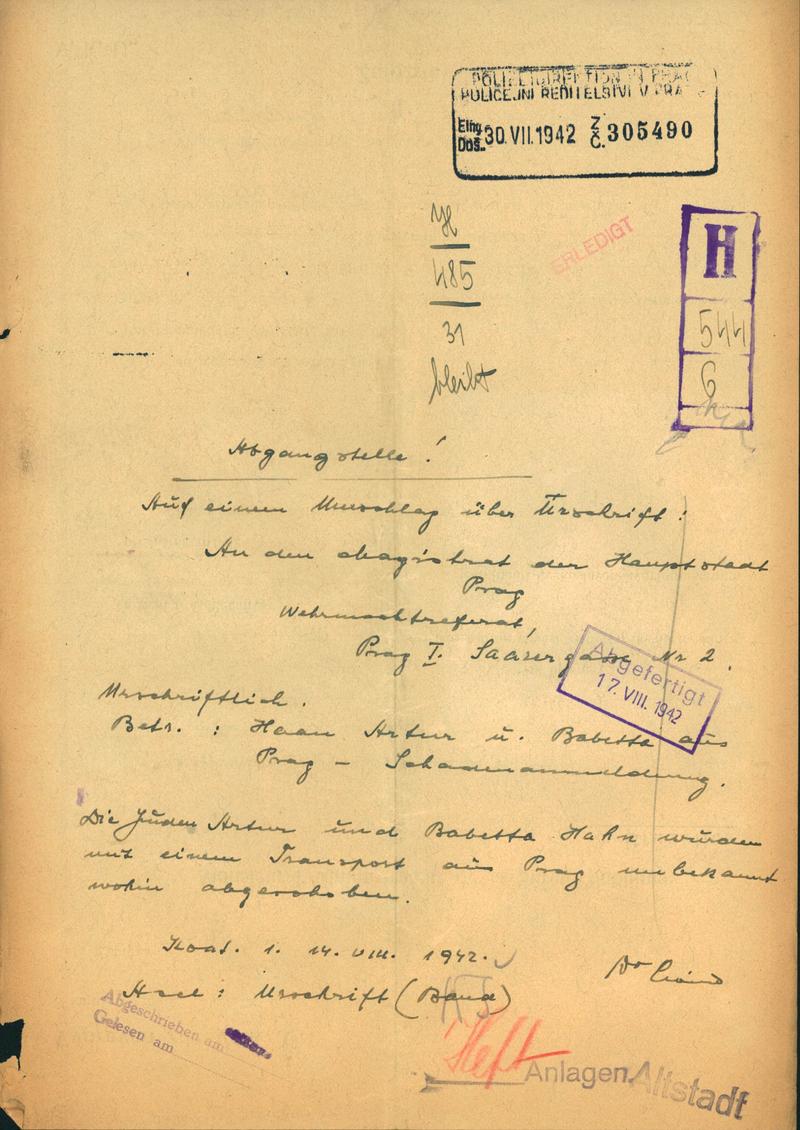 POLIZEIDIREKTION IN PRAG
POLICEJNÍ ŘEDITELSTVÍ V PRAZE
Eing. Doš. 30.VII.1942 Z. Č. 305490
H
485
31
bleibt
ERLEDIGT
H
544
6
Abgangstelle!
Auf einem Umschlag über Urschrift:
An den Magistrat der Hauptstadt
Prag
Wehrmachtreferat,
Prag I. Saazergasse Nr 2.
Abgefertigt
17. VIII. 1942
Urschriftlich.
Betr. : Haan Artur u. Babetta aus
Prag - Schadenanmeldung.
Die Juden Artur und Babetta Hahn wurden
mit einem Transport aus Prag unbekannt
wohin abgeschoben.
1. 14. VIII. 1942.
Dr
: Urschrift (Band)
Abgeschrieben am
Gelesen am
Heft
Anlagen.
Altstadt